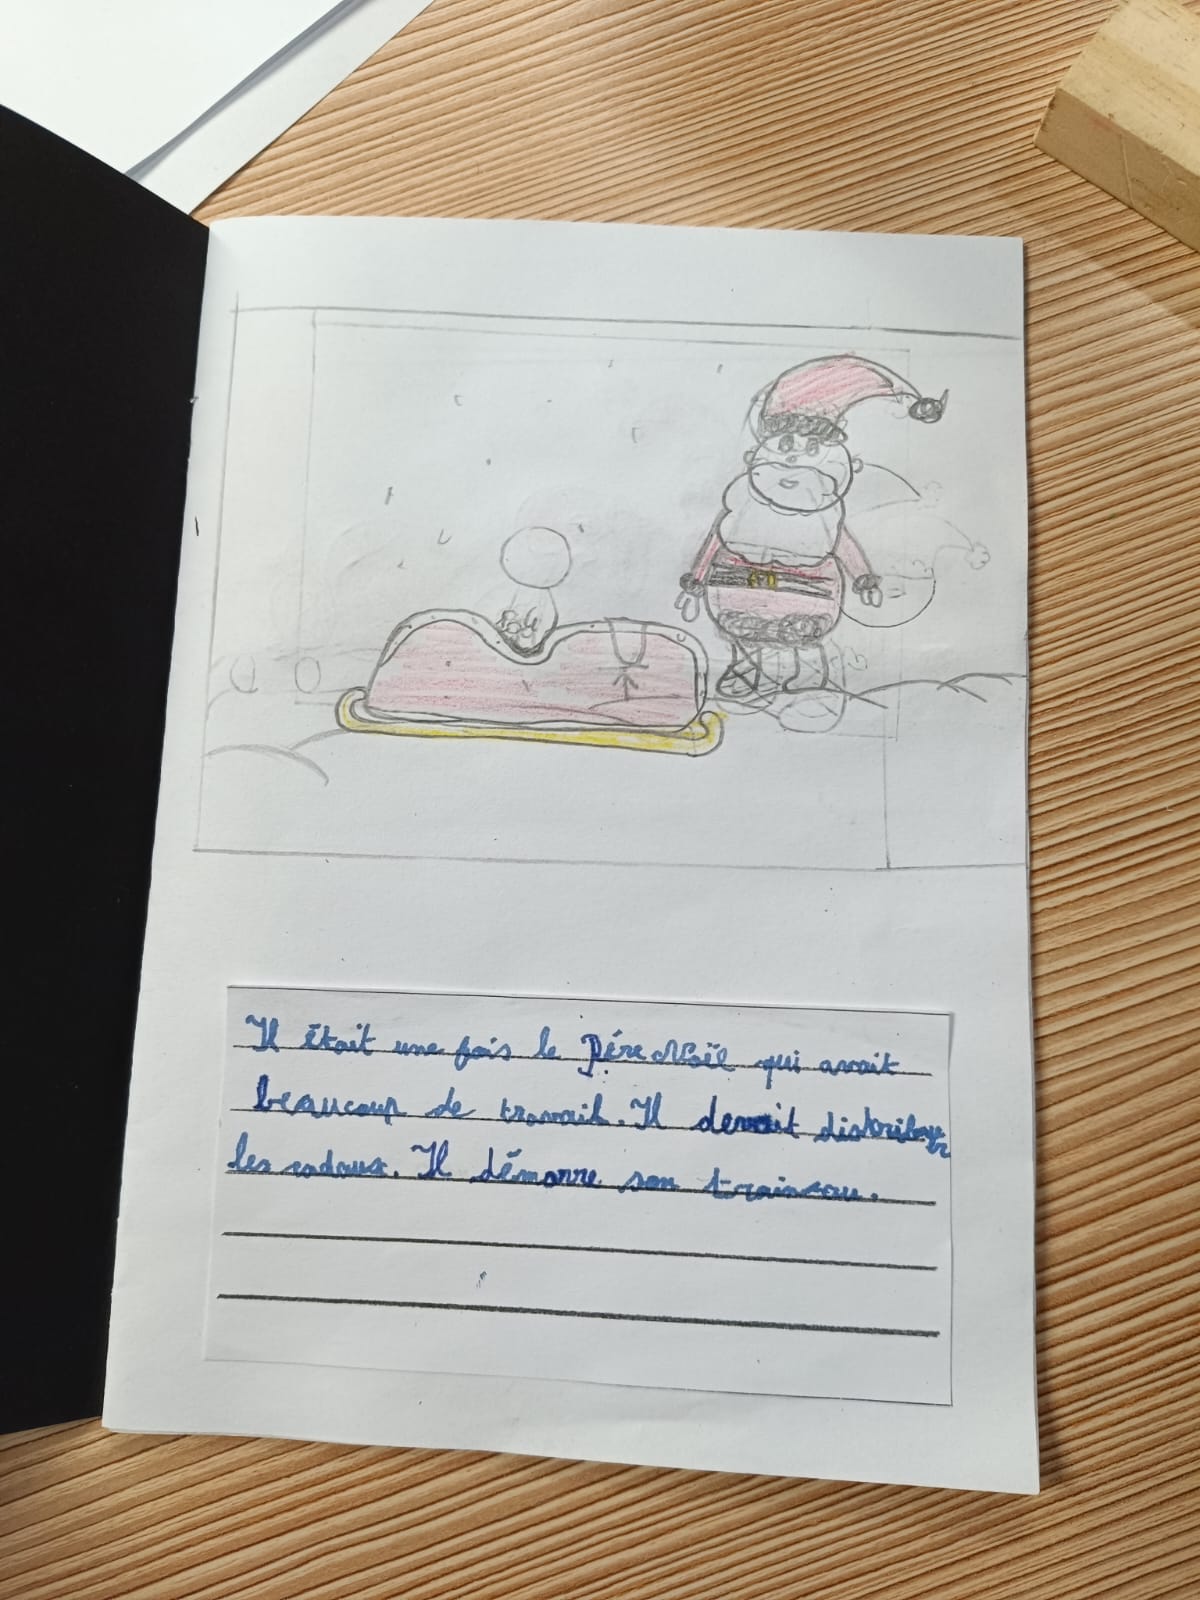 Il était une fois le Père Noël qui avait
beaucoup de travail. Il devait distribuer
les cadaux. Il démarre son trainsau.